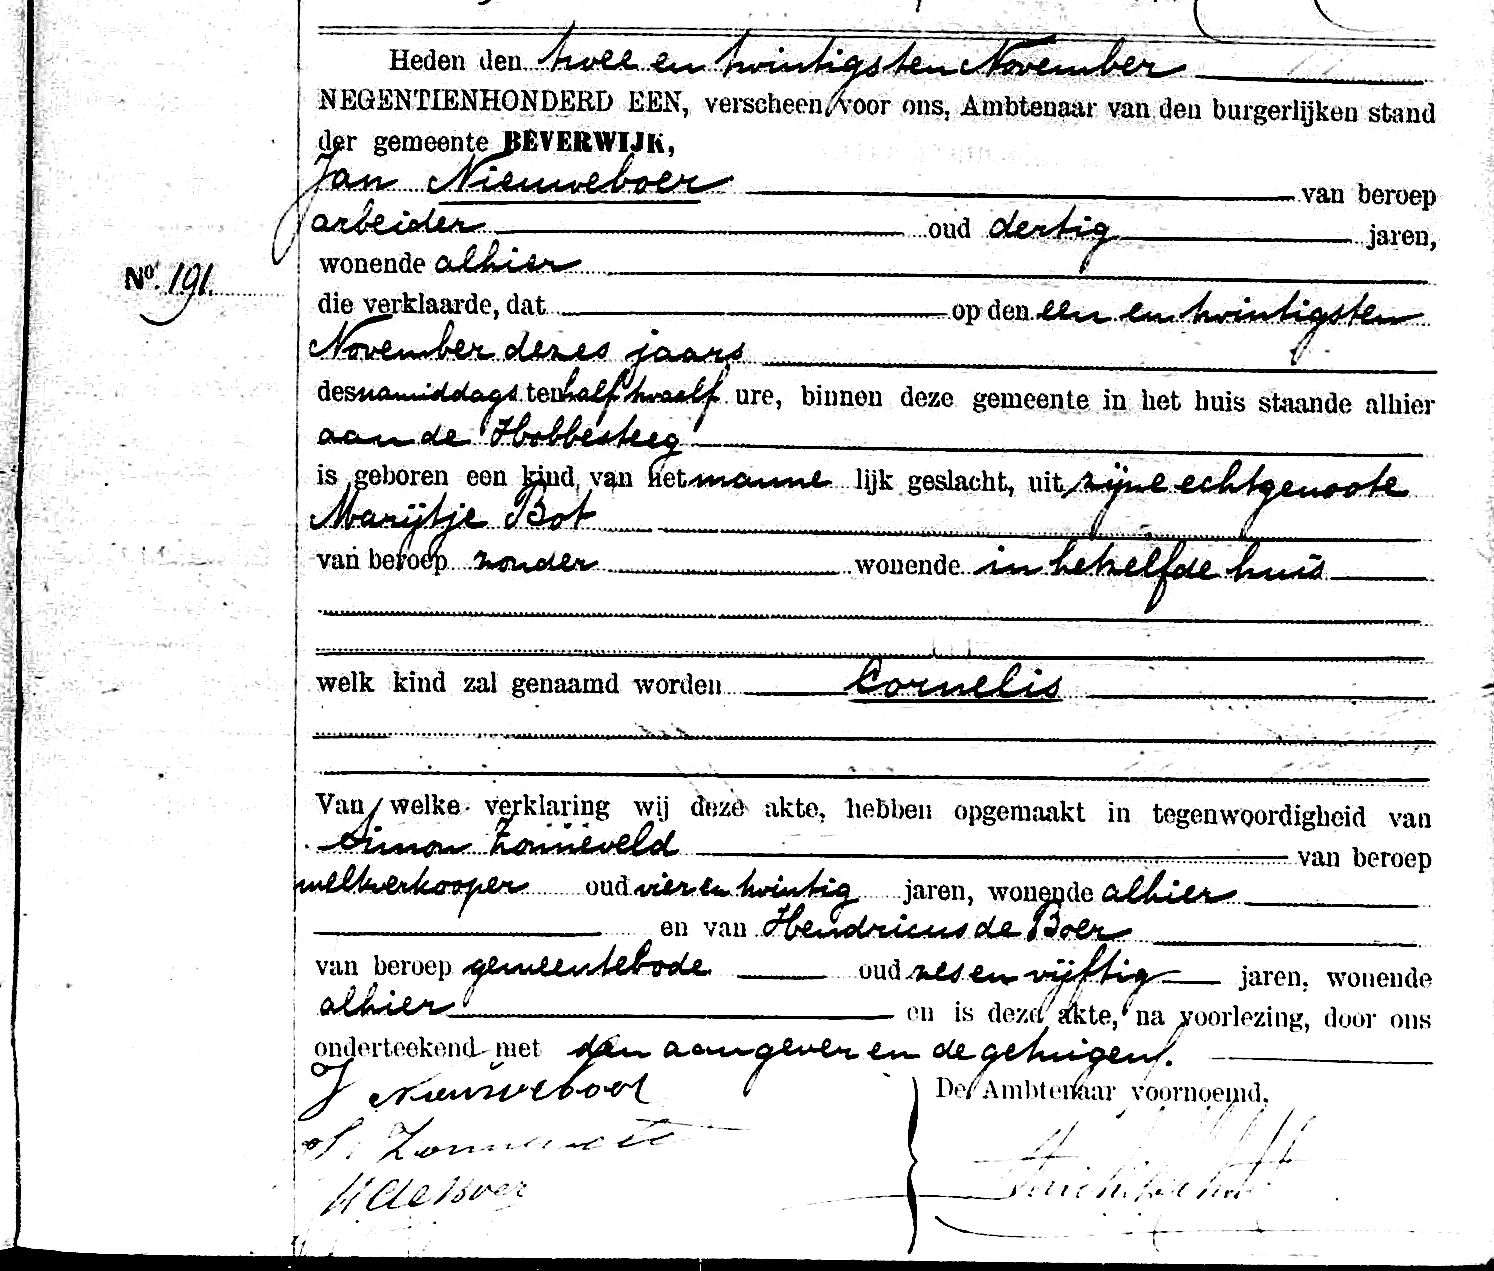 Heden den twee en twintigsten November
NEGENTIENHONDERD EEN, verscheen voor ons, Ambtenaar van den burgerlijken stand
der gemeente BEVERWIJK,
Jan Nieuweboer van beroep
arbeider oud dertig jaren,
wonende alhier
No. 191.
die verklaarde, dat op den een en twintigsten
November dezes jaars
des namiddags ten half twaalf ure, binnen deze gemeente in het huis staande alhier
aan de Hobbesteeg
is geboren een kind van het manne lijk geslacht, uit zijne echtgenoote
Marijtje Bot
van beroep zonder wonende in hetzelfde huis
welk kind zal genaamd worden Cornelis
Van welke verklaring wij deze akte, hebben opgemaakt in tegenwoordigheid van
Simon Zonneveld van beroep
melkverkooper oud vier en twintig jaren, wonende alhier
en van Hendricus de Boer
van beroep gemeentebode oud zes en vijftig jaren, wonende
alhier en is deze akte, na voorlezing, door ons
onderteekend met den aangever en de getuigen.
J Nieuweboer
De Ambtenaar voornoemd,
S. Zonneveld
H de Boer